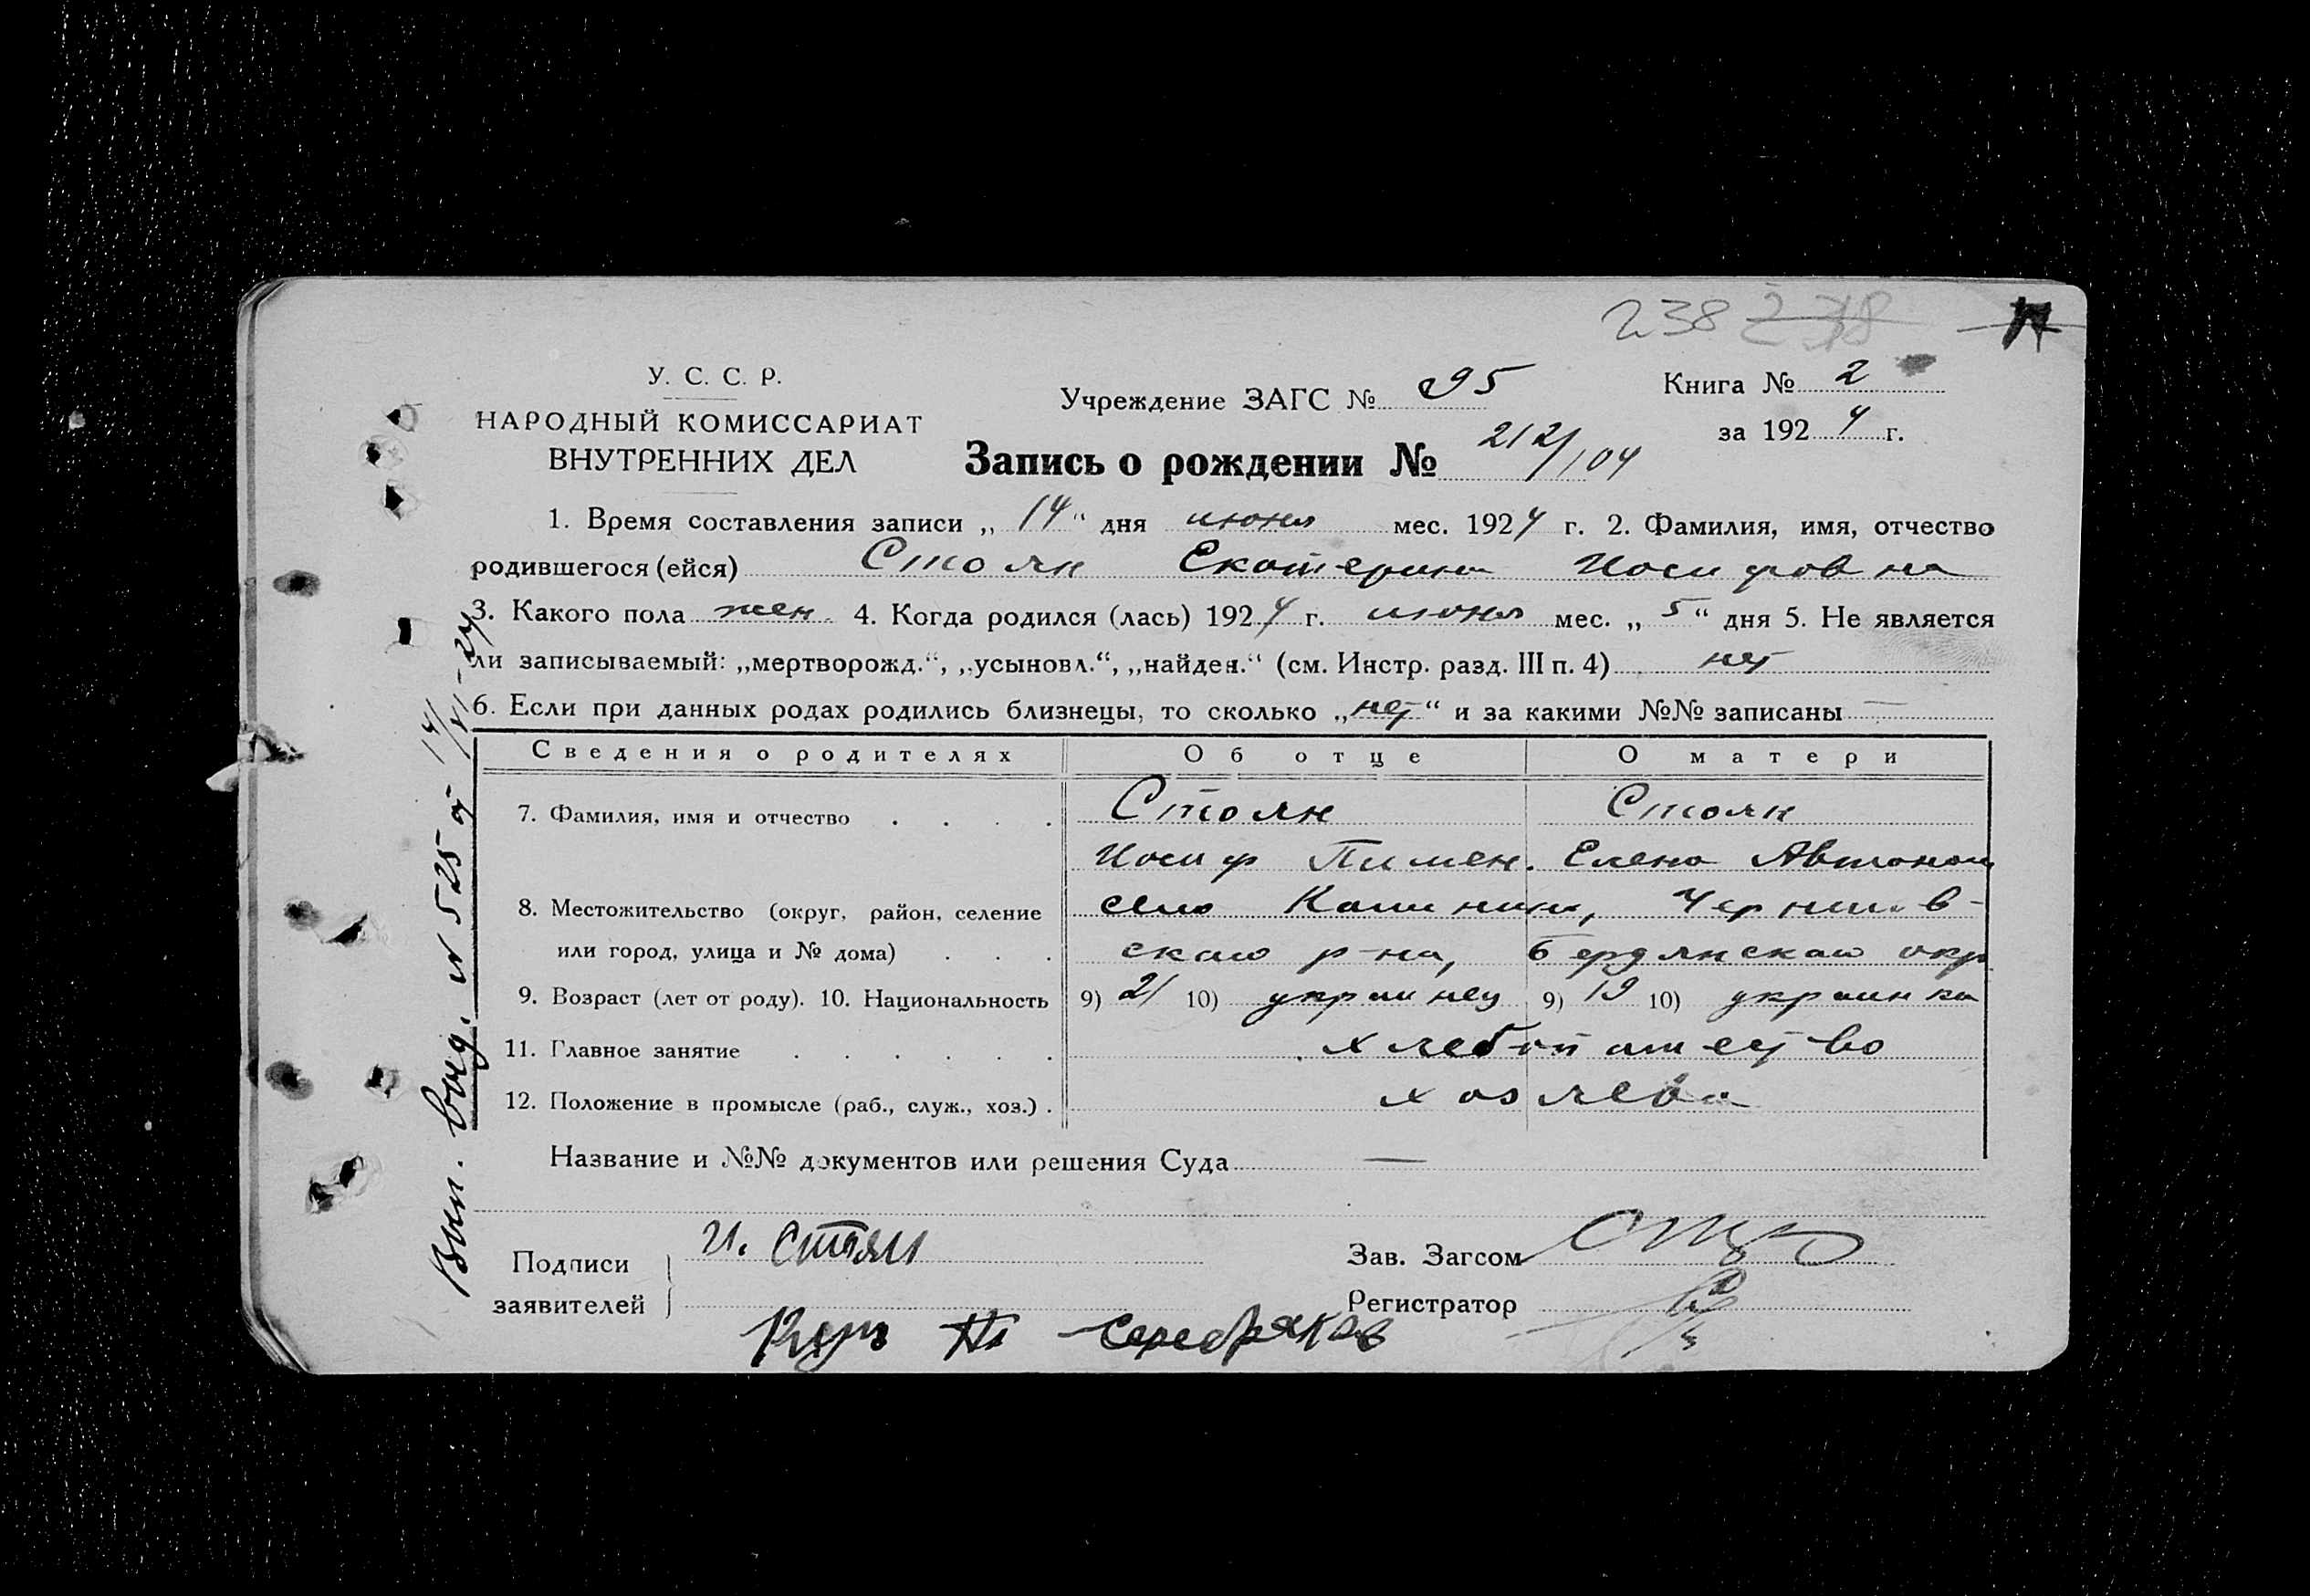 238 238
У. С. С. Р.
НАРОДНЫЙ КОМИССАРИАТ
ВНУТРЕННИХ ДЕЛ
Учреждение ЗАГС № 95
Книга № 2
за 1924 г.
Запись о рождении № 212/104
1. Время составления записи „14“ дня июня мес. 1924 г. 2. Фамилия, имя, отчество
родившегося (ейся) Стоян Екатерина Иосифовна
3. Какого пола жен. 4. Когда родился (лась) 1924 г. июня мес. „5“ дня 5. Не является
ли записываемый: „мертворожд.“, „усыновл.“, „найден.“ (см. Инстр. разд. III п. 4) нет
6. Если при данных родах родились близнецы, то сколько „нет“ и за какими №№ записаны —
Сведения о родителях Об отце О матери
7. Фамилия, имя и отчество . . . . Стоян Стоян
Иосиф Пимен. Елена Автоном
8. Местожительство (округ, район, селение село Черниьв-
или город, улица и № дома) . . . скаго р-на, Бердянскаго окр
9. Возраст (лет от роду). 10. Национальность 9) 21 10) украинец 9) 19 10) украинка
11. Главное занятие . . . . . . хлебопашество
12. Положение в промысле (раб., служ., хоз.) . хозяева
Название и №№ документов или решения Суда —
Подписи
заявителей
И. Стоян
Зав. Загсом
Регистратор
Серебряков
Вып. выд. № 525 от 14/VI-24